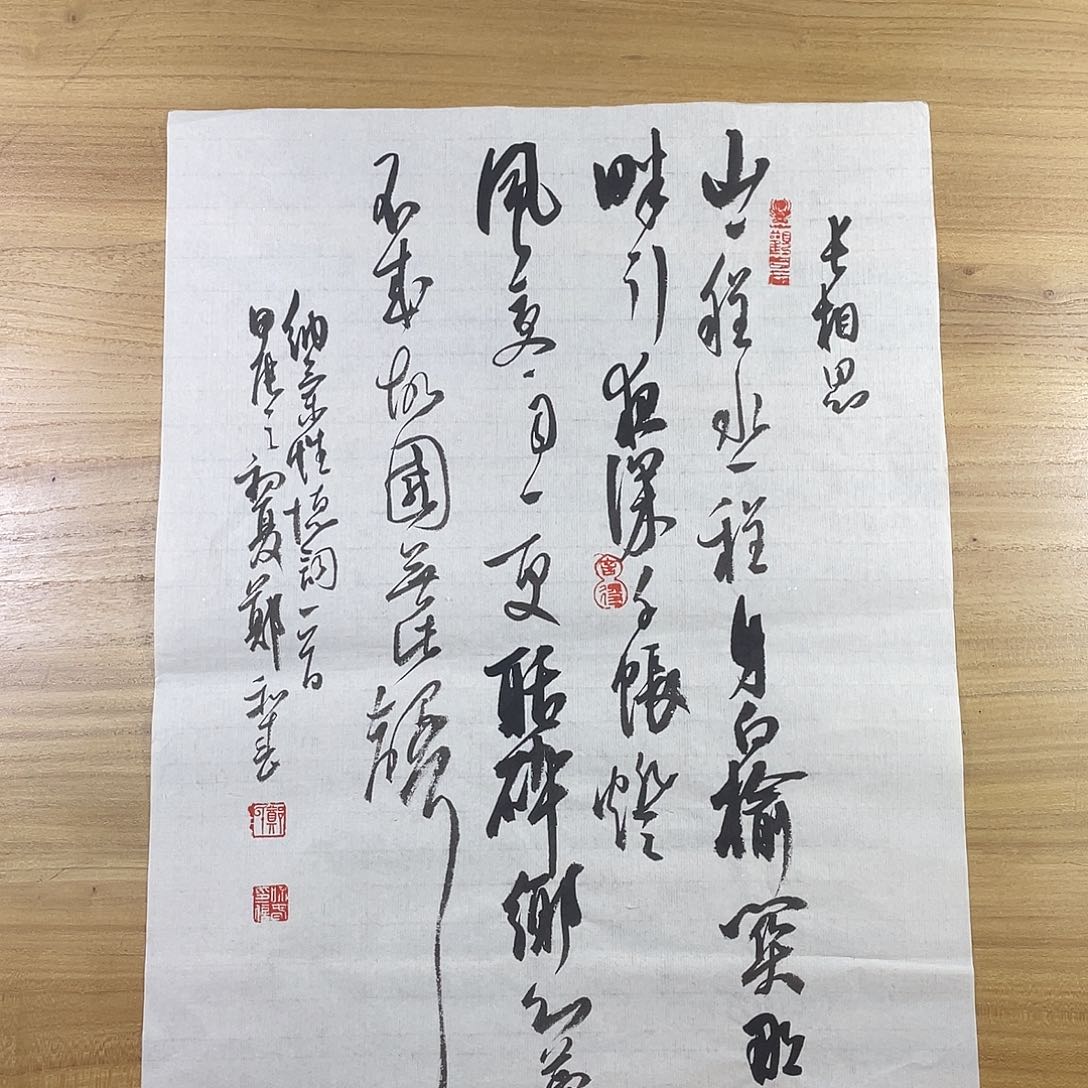 長相思
山一程水一程身向榆関那
畔行夜深千帳燈
舍得
風一更雪一更聒碎鄉心夢
不成故園無此聲
納蘭性德詞一首
甲辰之初夏鄭和春